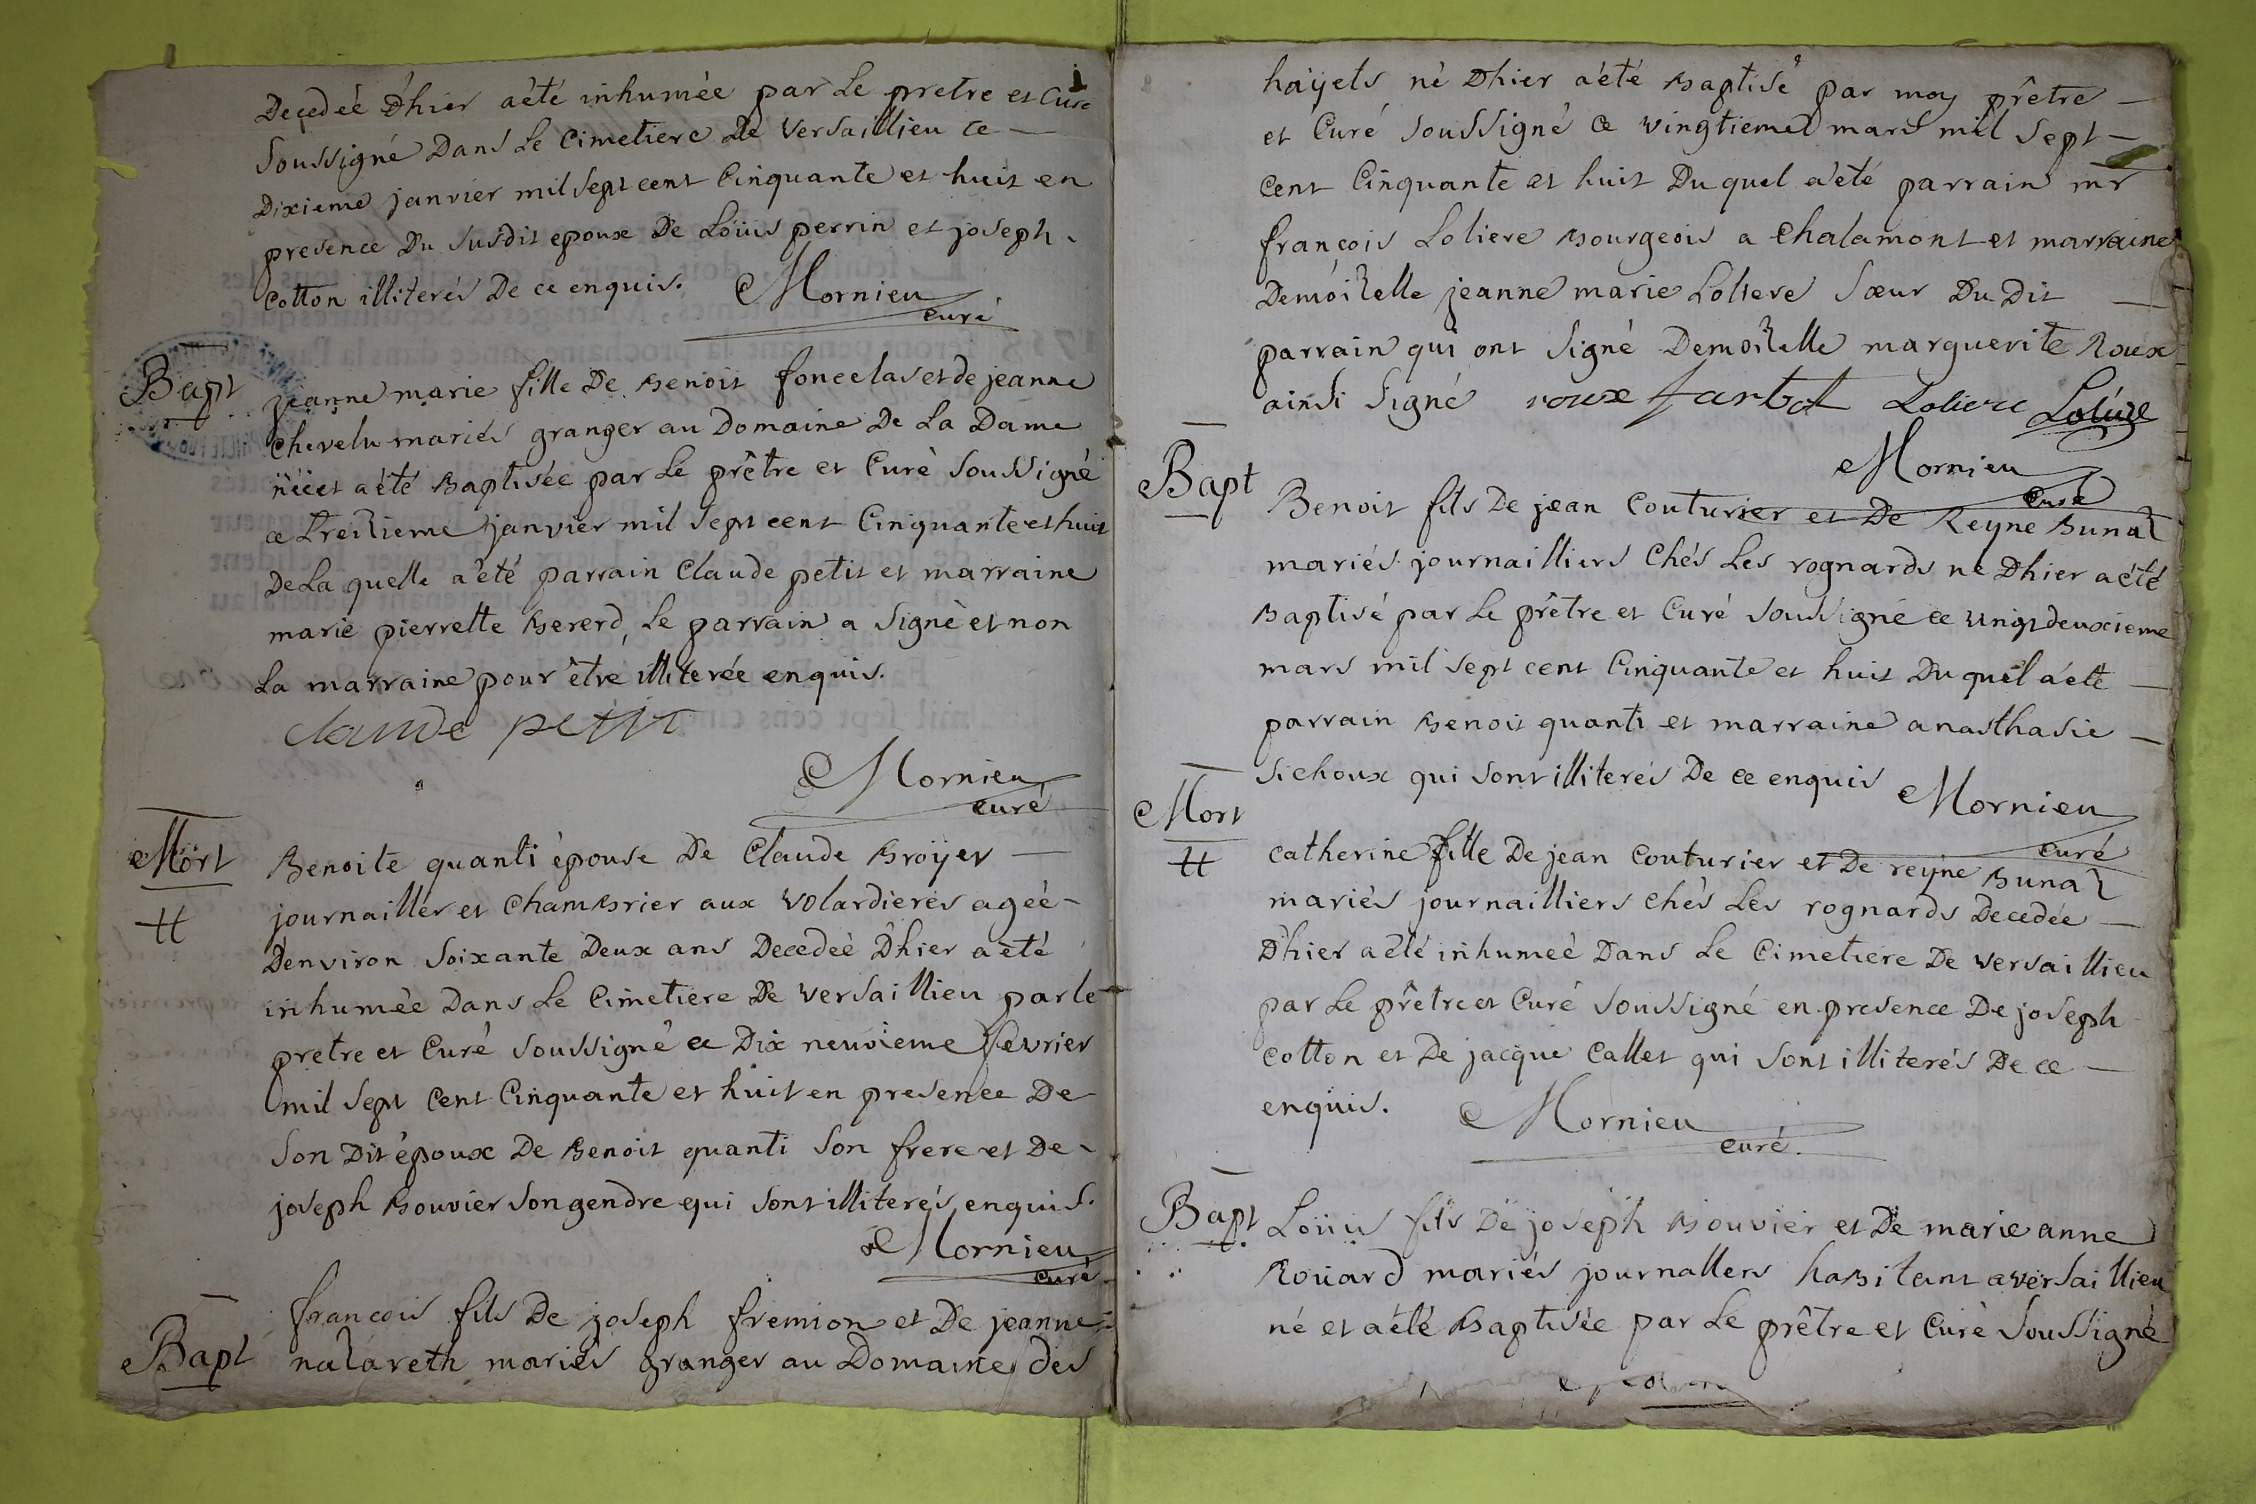 Decedeé D'hier a été inhumée par Le pretre et Curé
soussigné Dans Le Cimetiere De Versaillieu ce
Dixieme janvier mil sept cent Cinquante et huit en
presence Du susdit epoux De Loüis perrin et joseph
Cotton illiterés De ce enquis. Mornieu
curé
Bapt
jeanne marie fille De Benoit fonceelas et de jeanne
Chevelu mariés granger au Domaine De La Dame
née et a été Baptisée par Le prêtre et Curé soussigné
ce treizieme janvier mil sept cent Cinquante et huit
De La quelle a été parrain Claude petit et marraine
marie pierrette Bererd, Le parrain a signé et non
La marraine pour être illiterée enquis.
claude petit
Mornieu
curé
Mort
Benoite quanti épouse De Claude Broyer
journaillier et ChamBrier aux Volardieres ageé
D'environ soixante Deux ans Decedeé D'hier a été
inhumée Dans Le Cimetiere De Versaillieu par le
pretre et Curé soussigné ce Dix neuvieme fevrier
mil sept Cent Cinquante et huit en presence De
son Dit époux De Benoit quanti son frere et De
joseph Bouvier son gendre qui sont illiterés enquis.
Mornieu
curé
Bapt
francois fils De joseph fremion et De jeanne
nazareth mariés granger au Domaine des
hayets né D'hier a été Baptisé par moy prêtre
et Curé soussigné ce vingtieme mars mil sept
Cent Cinquante et huit Du quel a été parrain mr
françois Loliere Bourgeois a Chalamont et marraine
Demoizelle jeanne marie Loliere sœur Du Dit
parrain qui ont signé Demoizelle marguerite Roux
ainsi signé roux Loliere Loliere
Mornieu
curé
Bapt
Benoit fils De jean Couturier et De Reyne Bunaz
mariés journailliers Chés Les rognards né D'hier a été
Baptisé par Le prêtre et Curé soussigné ce vingt deuxieme
mars mil sept cent Cinquante et huit Du quel a été
parrain Benoit quanti et marraine anasthasie
sichoux qui sont illiterés De ce enquis Mornieu
curé
Mort
Catherine fille De jean Couturier et De reyne Bunaz
mariés journailliers chés Les rognards Decedée
D'hier a été inhumeé Dans Le Cimetiere De Versaillieu
par Le prêtre et Curé soussigné en presence De joseph
Cotton et De jacque Callet qui sont illiterés De ce
enquis. Mornieu
curé.
Bapt
Loüis fils De joseph Bouvier et De marie anne
Roüard mariés journallers haBitant a versaillieu
né et a été Baptisée par Le prêtre et Curé soussigné